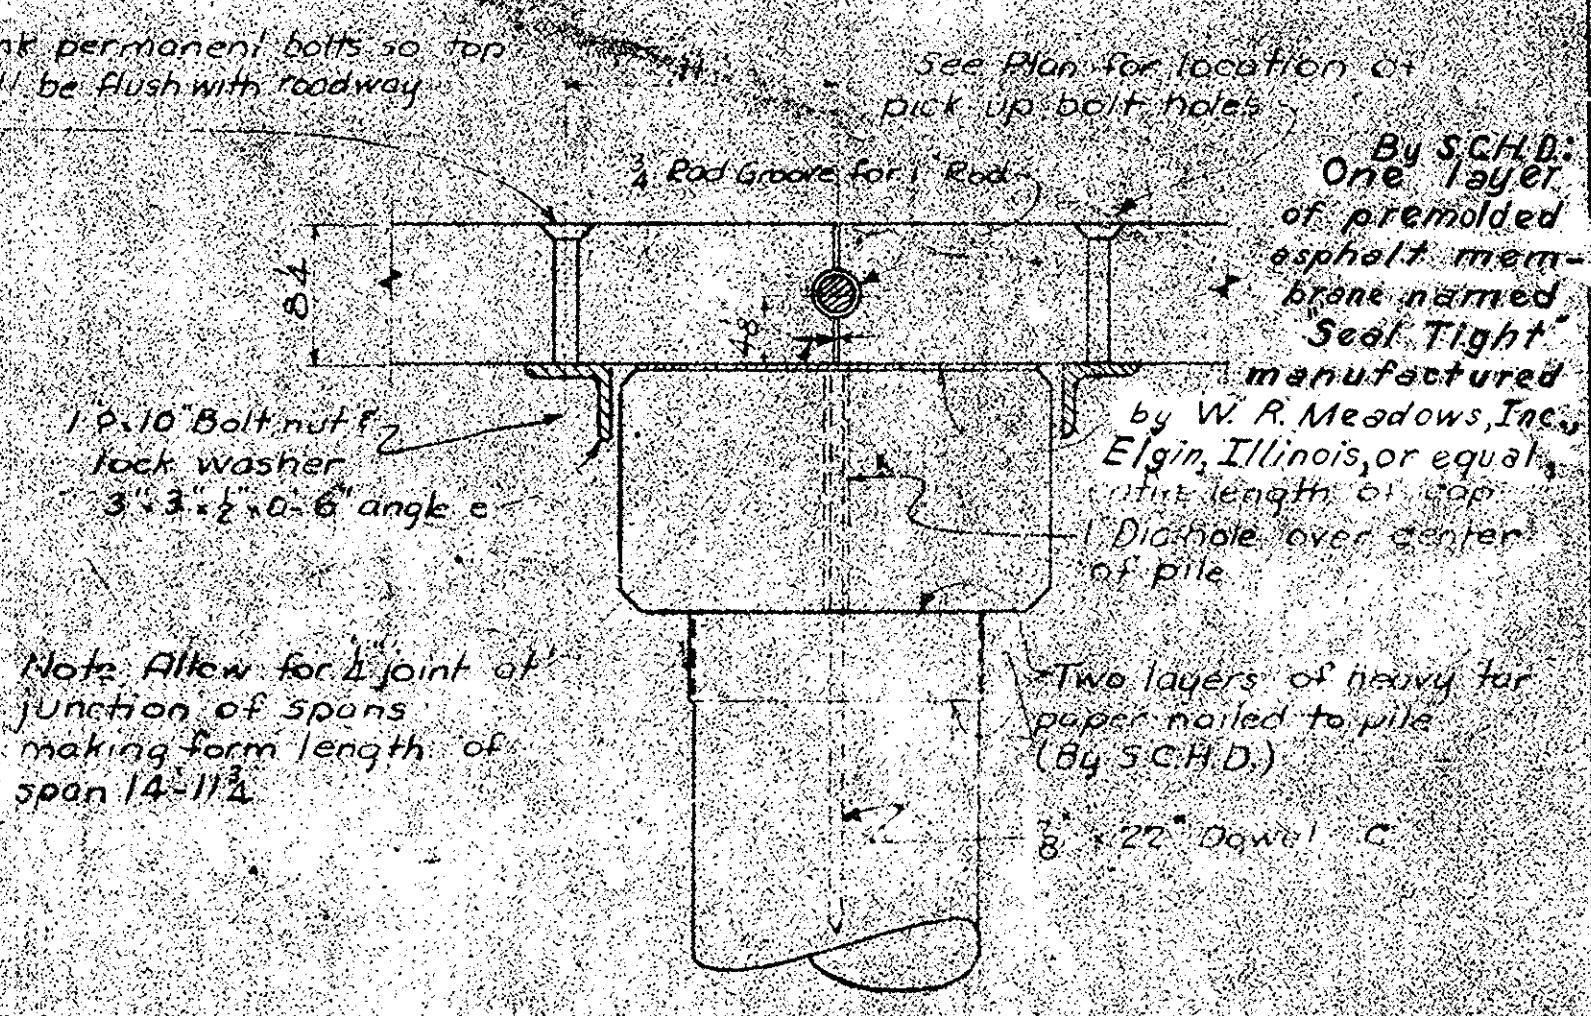 nk permanent bolts so top
ll be flush with roadway
See Plan for location of
pick up bolt holes
3/4 Rad Groove for 1" Rod
By S.C.H.D.:
One layer
of premolded
asphalt mem-
brane named
"Seal Tight"
manufactured
by W. R. Meadows, Inc.,
Elgin, Illinois, or equal,
entire length of cap
8 1/4
1"φ x 10" Bolt, nut &
lock washer
3" x 3" x 1/2" x 0-6" angle e
1" Dia. hole over center
of pile
Note Allow for 1/4" joint at
junction of spans
making form length of
span 14'-11 3/4
Two layers of heavy tar
paper nailed to pile
(By S.C.H.D.)
7/8" x 22" Dowel C